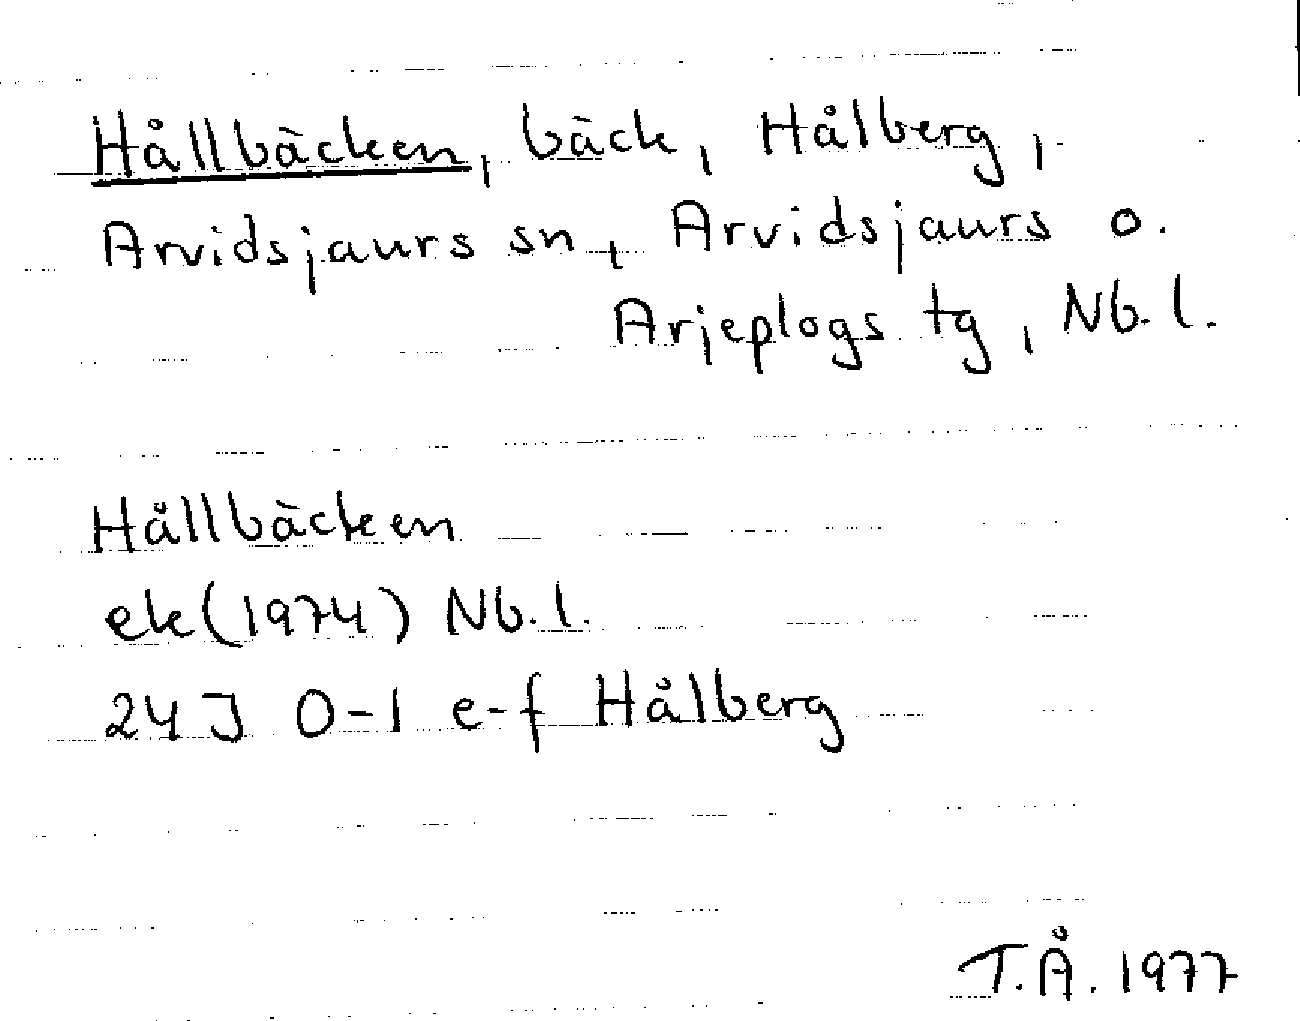 Hållbäcken, bäck, Hålberg,
Arvidsjaurs sn, Arvidsjaurs o.
Arjeplogs tg, Nb. l.
Hållbäcken
ek (1974) Nb. l.
24 J 0-1 e-f Hålberg
T.Å. 1977